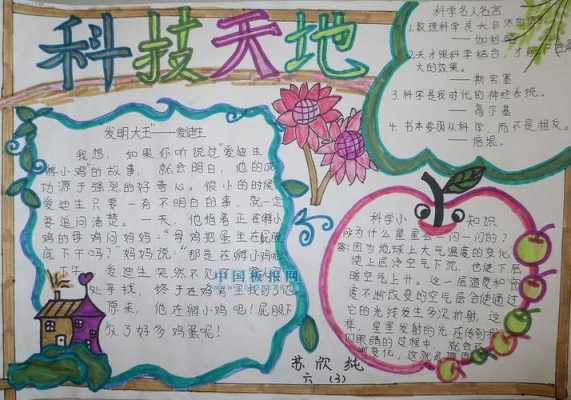 科技天地
发明大王"——爱迪生
我想，如果你听说过"爱迪生
孵小鸡"的故事，就会明白，他的成
功源于强烈的好奇心。很小的时候
爱迪生只要一有不明白的事，就一定
要追问清楚。一天，他指着正在孵小
鸡的母鸡问妈妈："母鸡把蛋坐在屁股
底下干吗？"妈妈说："那是在孵小鸡
爱迪生突然不见了
处寻找，终于在鸡窝里找到了他
原来，他在孵小鸡呢！屁股下
放了好多鸡蛋呢！
中国板报网
科学名人名言
1.数理科学是大自然的
——伽利略
2.天才跟科学结合，才
大的效果。
——斯宾塞
3.科学是我时代的神经系统。
——高尔基
4.书本要跟从科学，而不是相反。
——培根。
科学小知识
问为什么星星会一闪一闪的？
答：因为地球上大气温度的变化
使上层冷空气下沉，也使下层
暖空气上升。这一层温度和密
度不断改变的空气层会使通过
它的光线发生多次折射，这
样，星星发射的光在传到
我们眼睛的过程中，就会
变化，这就
苏欣纯
六（3）